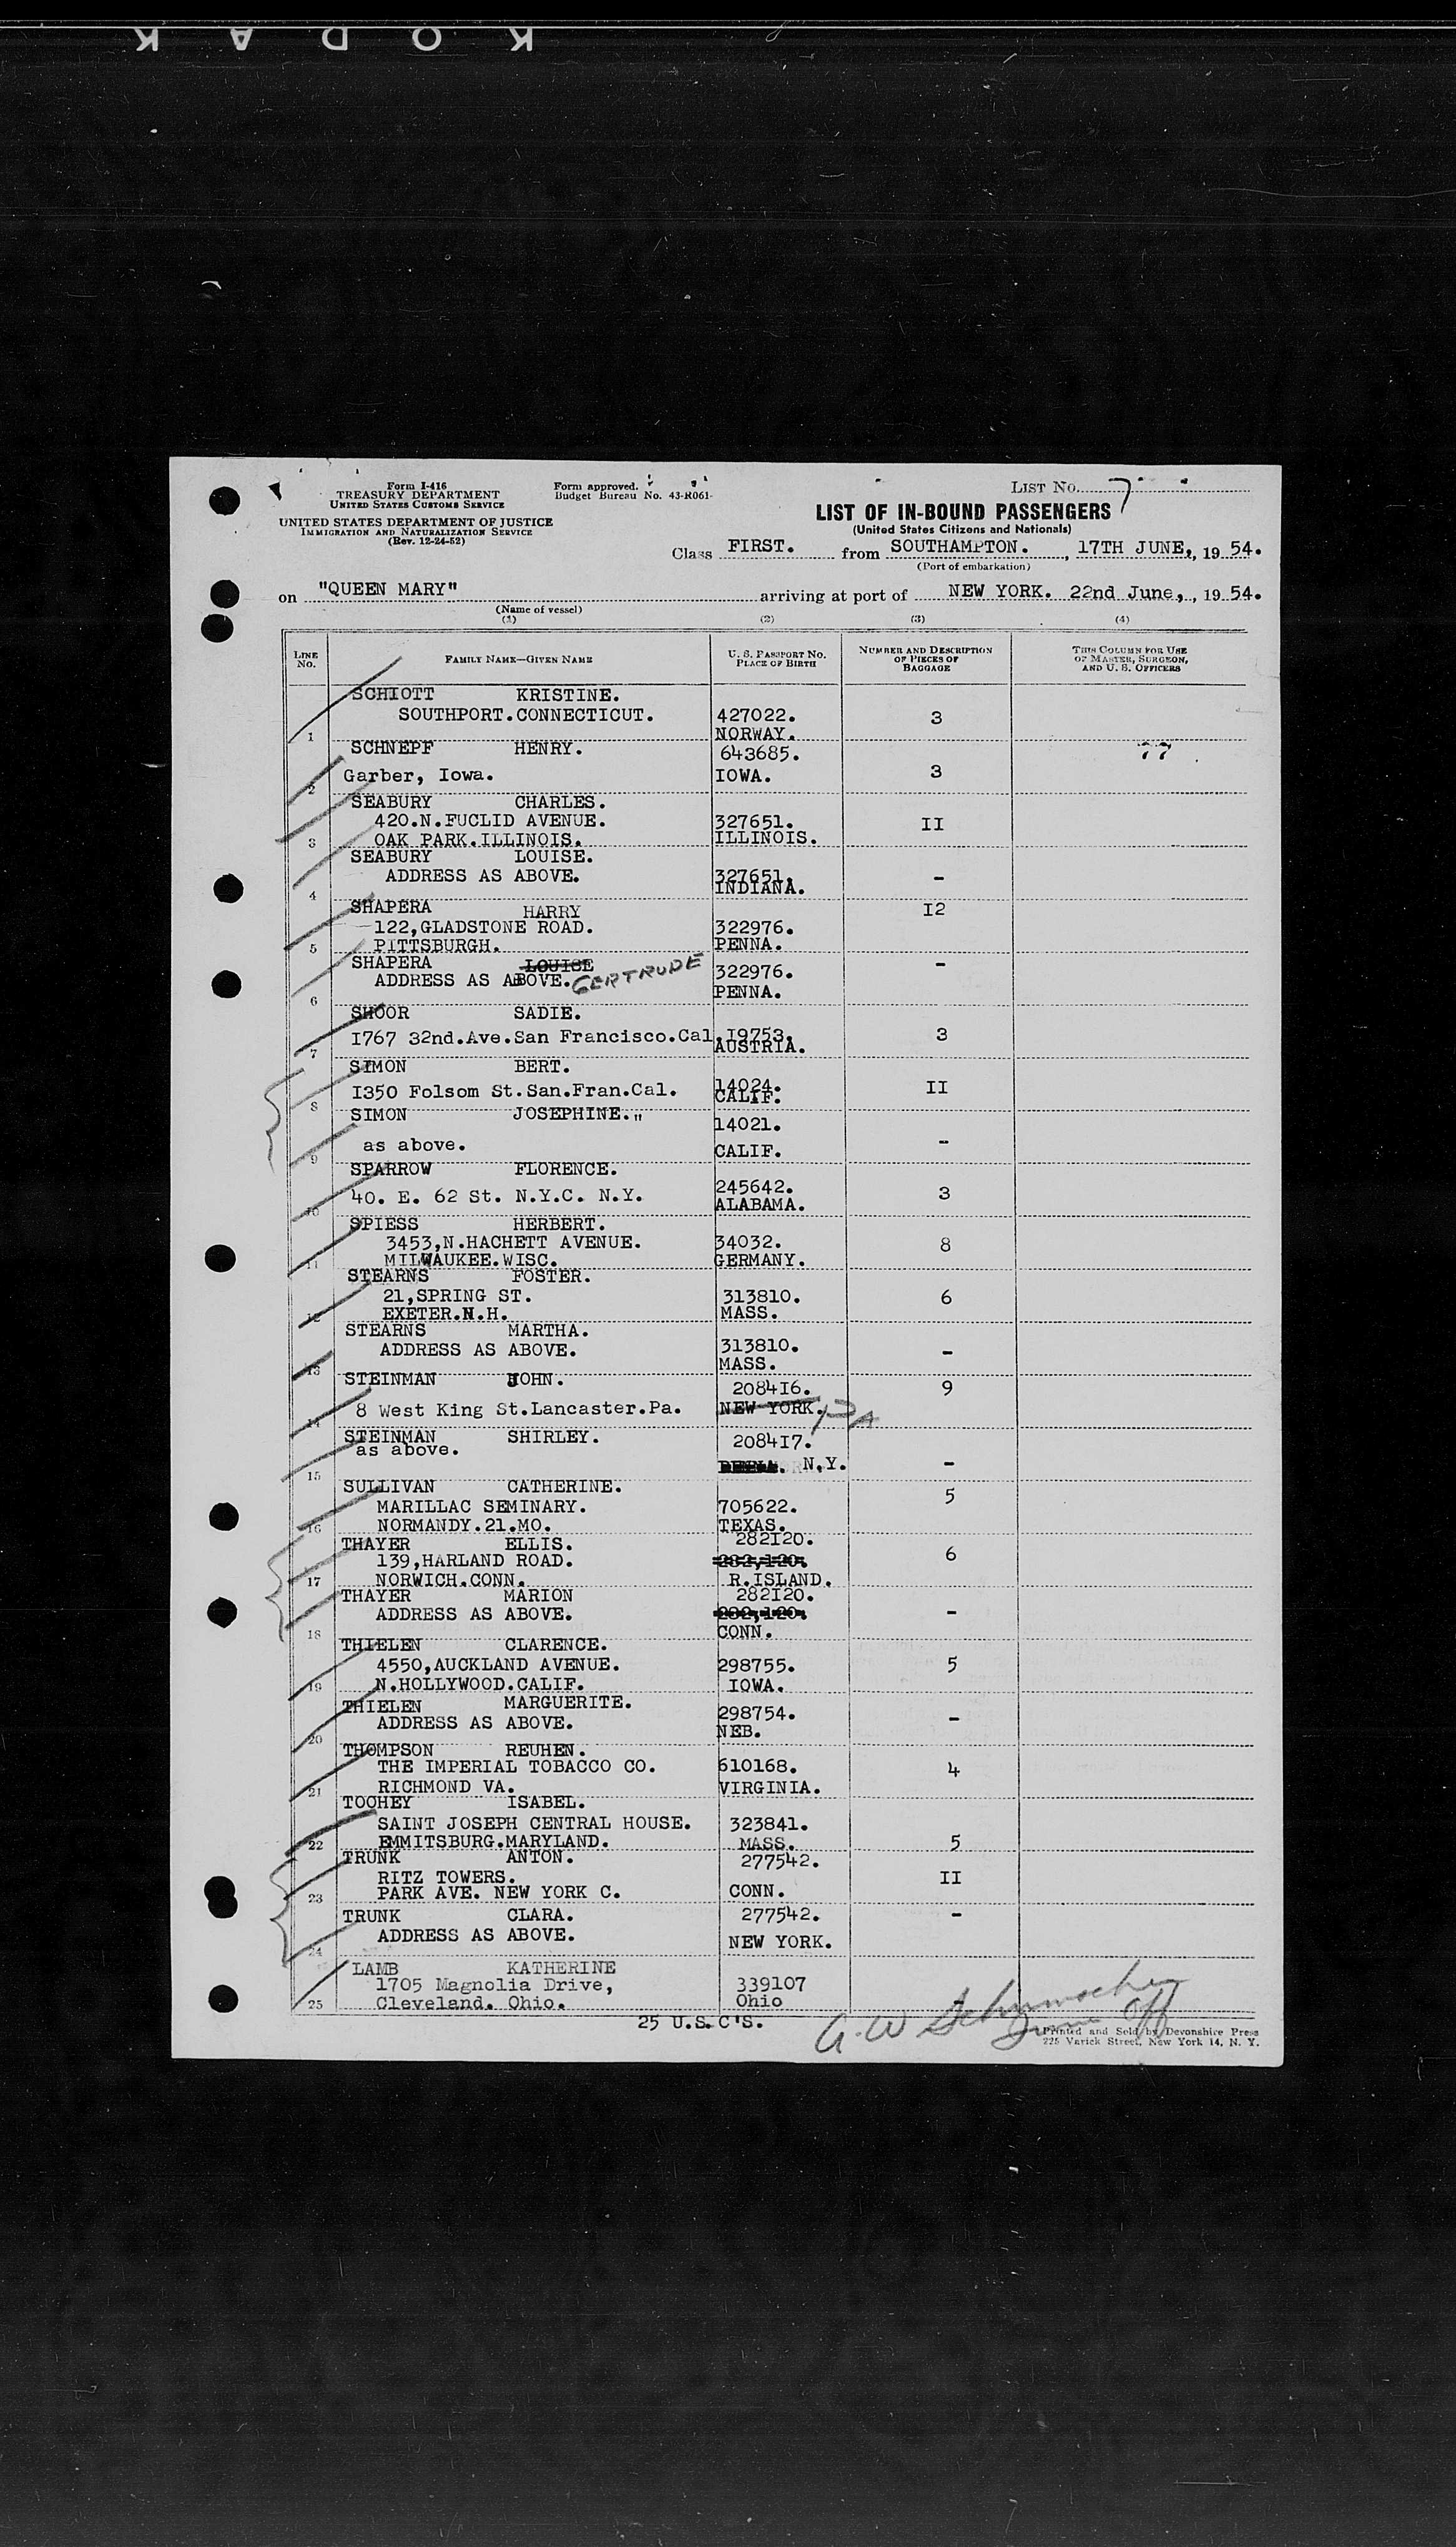 KODAK
Form I-416
TREASURY DEPARTMENT
UNITED STATES CUSTOMS SERVICE
UNITED STATES DEPARTMENT OF JUSTICE
IMMIGRATION AND NATURALIZATION SERVICE
(Rev. 12-24-52)
Form approved.
Budget Bureau No. 43-R061-
LIST No. 7
LIST OF IN-BOUND PASSENGERS
(United States Citizens and Nationals)
Class FIRST. from SOUTHAMPTON. , 17TH JUNE,, 19 54.
(Port of embarkation)
on "QUEEN MARY" arriving at port of NEW YORK. 22nd June,, 19 54.
(Name of vessel)
(1) (2) (3) (4)
LINE No. FAMILY NAME—GIVEN NAME U. S. PASSPORT No. PLACE OF BIRTH NUMBER AND DESCRIPTION OF PIECES OF BAGGAGE THIS COLUMN FOR USE OF MASTER, SURGEON, AND U. S. OFFICERS
SCHIOTT KRISTINE.
SOUTHPORT.CONNECTICUT. 427022. 3
1 NORWAY.
SCHNEPF HENRY. 643685. 77
Garber, Iowa. IOWA. 3
2
SEABURY CHARLES.
420.N.FUCLID AVENUE. 327651. II
3 OAK PARK.ILLINOIS. ILLINOIS.
SEABURY LOUISE.
ADDRESS AS ABOVE. 327651. -
4 INDIANA.
SHAPERA HARRY 12
122,GLADSTONE ROAD. 322976.
5 PITTSBURGH. PENNA.
SHAPERA LOUISE GERTRUDE -
ADDRESS AS ABOVE. 322976.
6 PENNA.
SHOOR SADIE.
I767 32nd.Ave.San Francisco.Cal. I9753. 3
7 AUSTRIA.
SIMON BERT.
I350 Folsom St.San.Fran.Cal. 14024. II
8 CALIF.
SIMON JOSEPHINE." 14021.
as above. -
9 CALIF.
SPARROW FLORENCE.
40. E. 62 St. N.Y.C. N.Y. 245642. 3
10 ALABAMA.
SPIESS HERBERT.
3453,N.HACHETT AVENUE. 34032. 8
11 MILWAUKEE.WISC. GERMANY.
STEARNS FOSTER.
21,SPRING ST. 313810. 6
12 EXETER.N.H. MASS.
STEARNS MARTHA.
ADDRESS AS ABOVE. 313810. -
13 MASS.
STEINMAN JOHN. 208416. 9
8 West King St.Lancaster.Pa. NEW YORK. PA
14
STEINMAN SHIRLEY. 208417.
as above.
15 N.Y. -
SULLIVAN CATHERINE. 5
MARILLAC SEMINARY. 705622.
16 NORMANDY.21.MO. TEXAS.
THAYER ELLIS. 282I20.
139,HARLAND ROAD. 282,120. 6
17 NORWICH.CONN. R.ISLAND.
THAYER MARION 282I20.
ADDRESS AS ABOVE. 282,120. -
18 CONN.
THIELEN CLARENCE.
4550,AUCKLAND AVENUE. 298755. 5
19 N.HOLLYWOOD.CALIF. IOWA.
THIELEN MARGUERITE.
ADDRESS AS ABOVE. 298754. -
20 NEB.
THOMPSON REUHEN.
THE IMPERIAL TOBACCO CO. 610168. 4
21 RICHMOND VA. VIRGINIA.
TOOHEY ISABEL.
SAINT JOSEPH CENTRAL HOUSE. 323841.
22 EMMITSBURG.MARYLAND. MASS. 5
TRUNK ANTON. 277542.
RITZ TOWERS. II
23 PARK AVE. NEW YORK C. CONN.
TRUNK CLARA. 277542. -
ADDRESS AS ABOVE.
24 NEW YORK.
LAMB KATHERINE
1705 Magnolia Drive, 339107
25 Cleveland. Ohio. Ohio -
25 U.S.C'S.
A.W Schumacher
Imm Off
Printed and Sold by Devonshire Press
225 Varick Street, New York 14, N. Y.